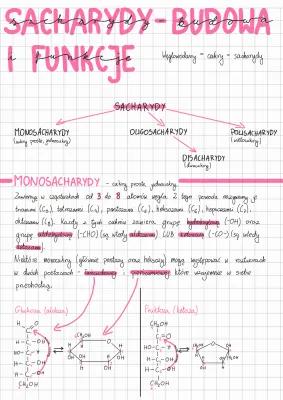 SACHARYDY - BUDOWA
budowa
I FUNKCJE
Węglowodany = cukry = sacharydy
SACHARYDY
MONOSACHARYDY OLIGOSACHARYDY POLISACHARYDY
(cukry proste, jednocukry) (wielocukry)
DISACHARYDY
(dwucukry)
MONOSACHARYDY - cukry proste, jednocukry.
Zawierają w cząsteczkach od 3 do 8 atomów węgla. Z tego powodu rozróżniamy je
triozami (C3), tetrozami (C4), pentozami (C5), heksozami (C6), heptozami (C7),
oktozami (C8). Każdy z tych cukrów zawiera grupę hydroksylową (-OH) oraz
grupę aldehydową (-CHO) (są wtedy aldozami) LUB ketonową (-CO-) (są wtedy
ketozami).
Niektóre monocukry (głównie pentozy oraz heksozy) mogą występować w roztworach
w dwóch postaciach - łańcuchowej i pierścieniowej, które wzajemnie w siebie
przechodzą.
Glukoza (aldoza) Fruktoza (ketoza)
CH2OH
CH2OH
C=O
CH2OH
CH2OH